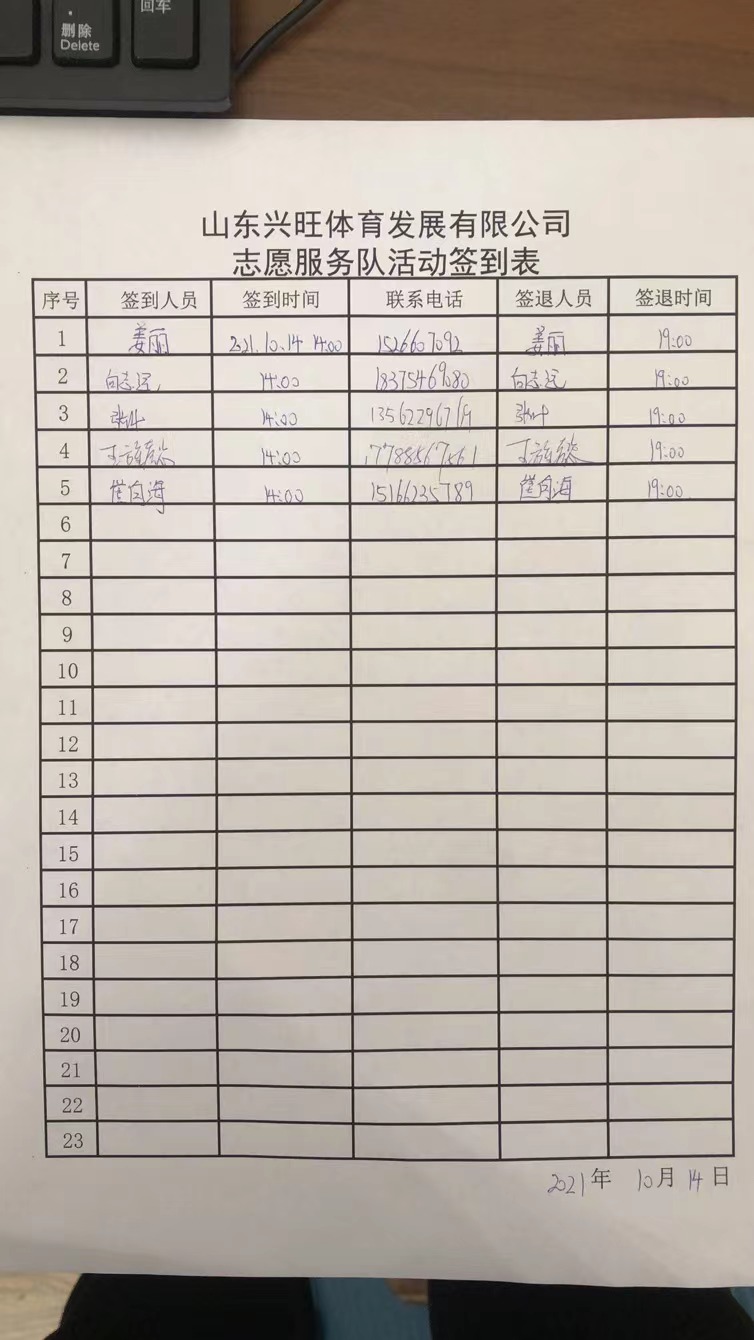 回车
删除
Delete
山东兴旺体育发展有限公司
志愿服务队活动签到表
序号 签到人员 签到时间 联系电话 签退人员 签退时间
1 姜丽 2021.10.14 14:00 姜丽 19:00
2 向志远 14:00 18375469080 向志远 19:00
3 张叶 14:00 张叶 19:00
4 14:00 19:00
5 崔向海 14:00 15166235789 崔向海 19:00
6
7
8
9
10
11
12
13
14
15
16
17
18
19
20
21
22
23
2021年 10月 14日